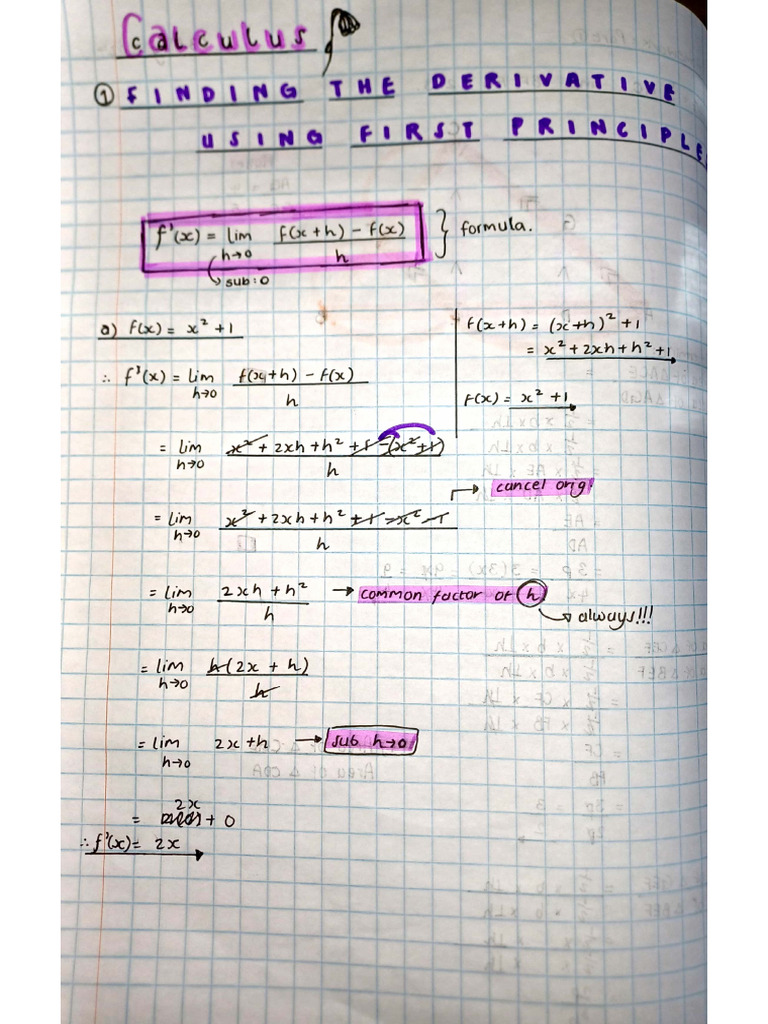 Calculus
① FINDING THE DERIVATIVE
USING FIRST PRINCIPLES
f'(x) = lim h→0 f(x+h) – f(x) / h } formula.
sub: 0
a) f(x) = x² + 1
f(x+h) = (x+h)² + 1
= x² + 2xh + h² + 1
f(x) = x² + 1
∴ f'(x) = lim h→0 f(x+h) – f(x) / h
= lim h→0 x² + 2xh + h² + 1 – (x² + 1) / h
→ cancel orig!
= lim h→0 x² + 2xh + h² + 1 – x² – 1 / h
= lim h→0 2xh + h² / h → common factor of h
→ always!!!
= lim h→0 h(2x + h) / h
= lim h→0 2x + h → sub h→0
= 2x + 0
∴ f'(x) = 2x